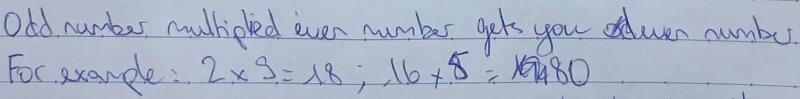 Odd number multiplied even number gets you even number.
For example: 2 x 9 = 18 ; 16 x 5 = 80